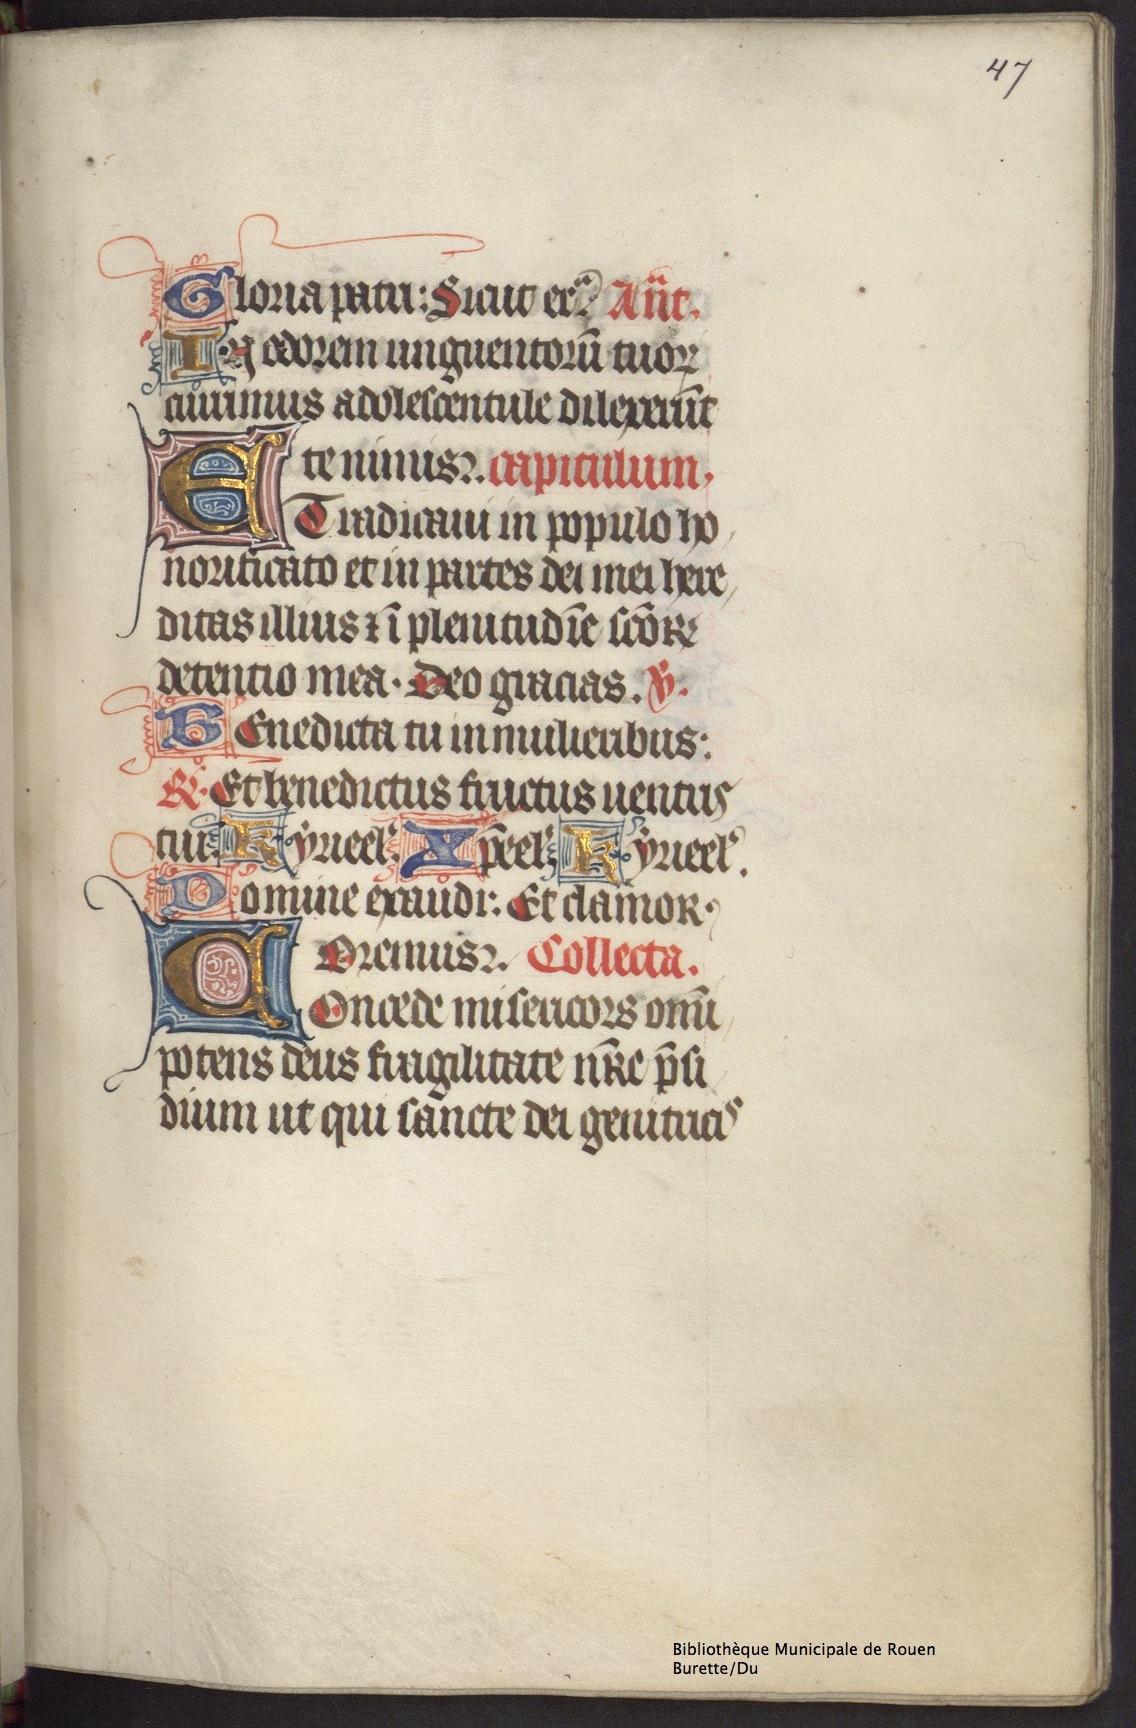 47
Gloria patri: Sicut erᵃ. Añt.
In odorem unguentorū tuoꝝ
currimus adolescentule dilexerūt
te nimisꝛ. capitulum.
Et radicaui in populo ho
norificato et in partes dei mei here
ditas illius ⁊ ī plenitudīe scōꝝ
detentio mea. Deo gracias. ℣.
Benedicta tu in mulieribus:
℟. Et benedictus fructus uentris
tui. Kyrieel'. Xp̄eel'. Kyrieel'.
Domine exaudi: Et clamor.
Oremusꝛ. Collecta.
Concede misericors omī
potens deus fragilitate nr̄e p̄si
dium ut qui sancte dei genitricis
Bibliothèque Municipale de Rouen
Burette/Du